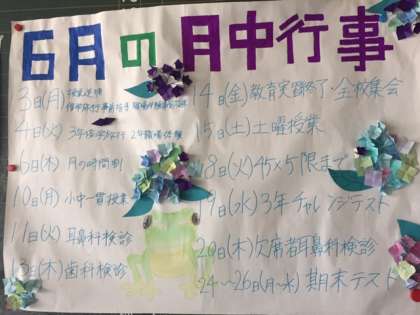 6月の月中行事
3日(月)
4日(火) 3年修学旅行 2年職場体験
6日(木) 月の時間割
10日(月) 小中一貫授業
11日(火) 耳鼻科検診
日(木) 歯科検診
14日(金) 教育実習終了・全校集会
15日(土) 土曜授業
8日(火) 45×5限まで
9日(水) 3年チャレンジテスト
20日(木) 欠席者耳鼻科検診
24〜26日(月〜水) 期末テスト